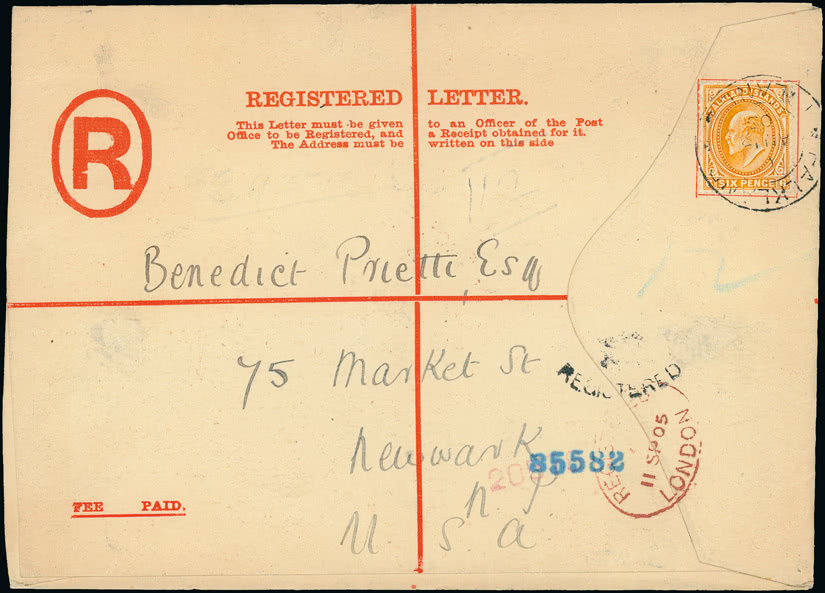 REGISTERED LETTER.
This Letter must be given to an Officer of the Post
Office to be Registered, and a Receipt obtained for it.
The Address must be written on this side
R
FALKLAND ISLANDS
SIX PENCE
Benedict Prietti, Esq
75 Market St
REGISTERED
Newwark
85582
11 SP 05
LONDON
N J
FEE PAID.
U. S. a